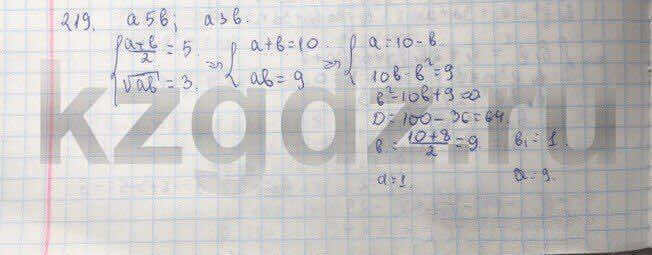 219. a 5 b; a 3 b.
{ (a+b)/2 = 5. => { a+b=10. => { a=10-b.
√ab = 3. ab = 9 10b-b²=9
b²-10b+9=0
D=100-36=64.
b = (10+8)/2 = 9 b₁=1.
a=1. a=9.
kzgdz.ru